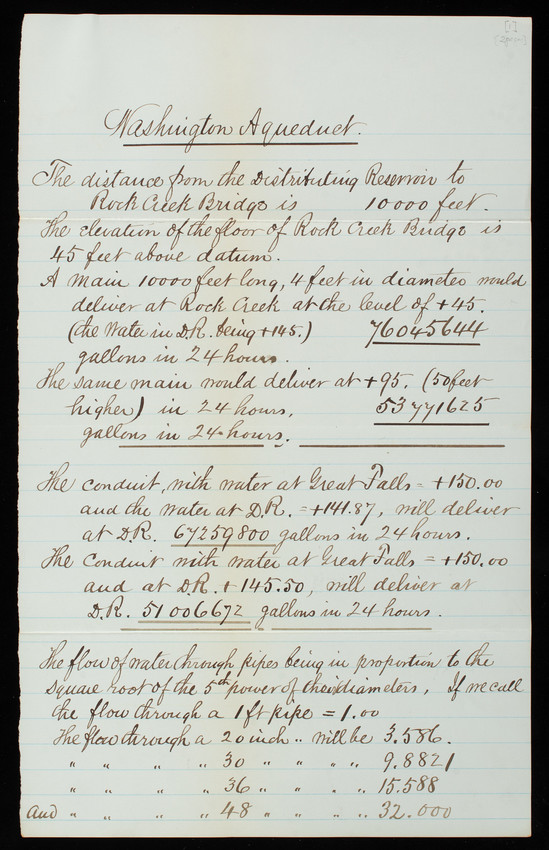 [1]
Washington Aqueduct.
The distance from the Distributing Reservoir to
Rock Creek Bridge is 10000 feet.
The elevation of the floor of Rock Creek Bridge is
45 feet above datum.
A main 10000 feet long, 4 feet in diameter would
deliver at Rock Creek at the level of +45.
(the Water in D.R. being +145.) 76045644
gallons in 24 hours.
The same main would deliver at +95. (50 feet
higher) in 24 hours, 53771625
gallons in 24 hours.
The conduit, with water at Great Falls = +150.00
and the water at D.R. = +141.87, will deliver
at D.R. 67259800 gallons in 24 hours.
The conduit with water at Great Falls = +150.00
and at D.R. + 145.50, will deliver at
D.R. 51006672 gallons in 24 hours.
The flow of water through pipes being in proportion to the
square root of the 5th power of their diameters, If we call
the flow through a 1 ft pipe = 1.00
The flow through a 20 inch " will be 3.586.
" " " " 30 " " " " 9.8821
" " " " 36 " " " " 15.588
and " " " " 48 " " " " 32.000